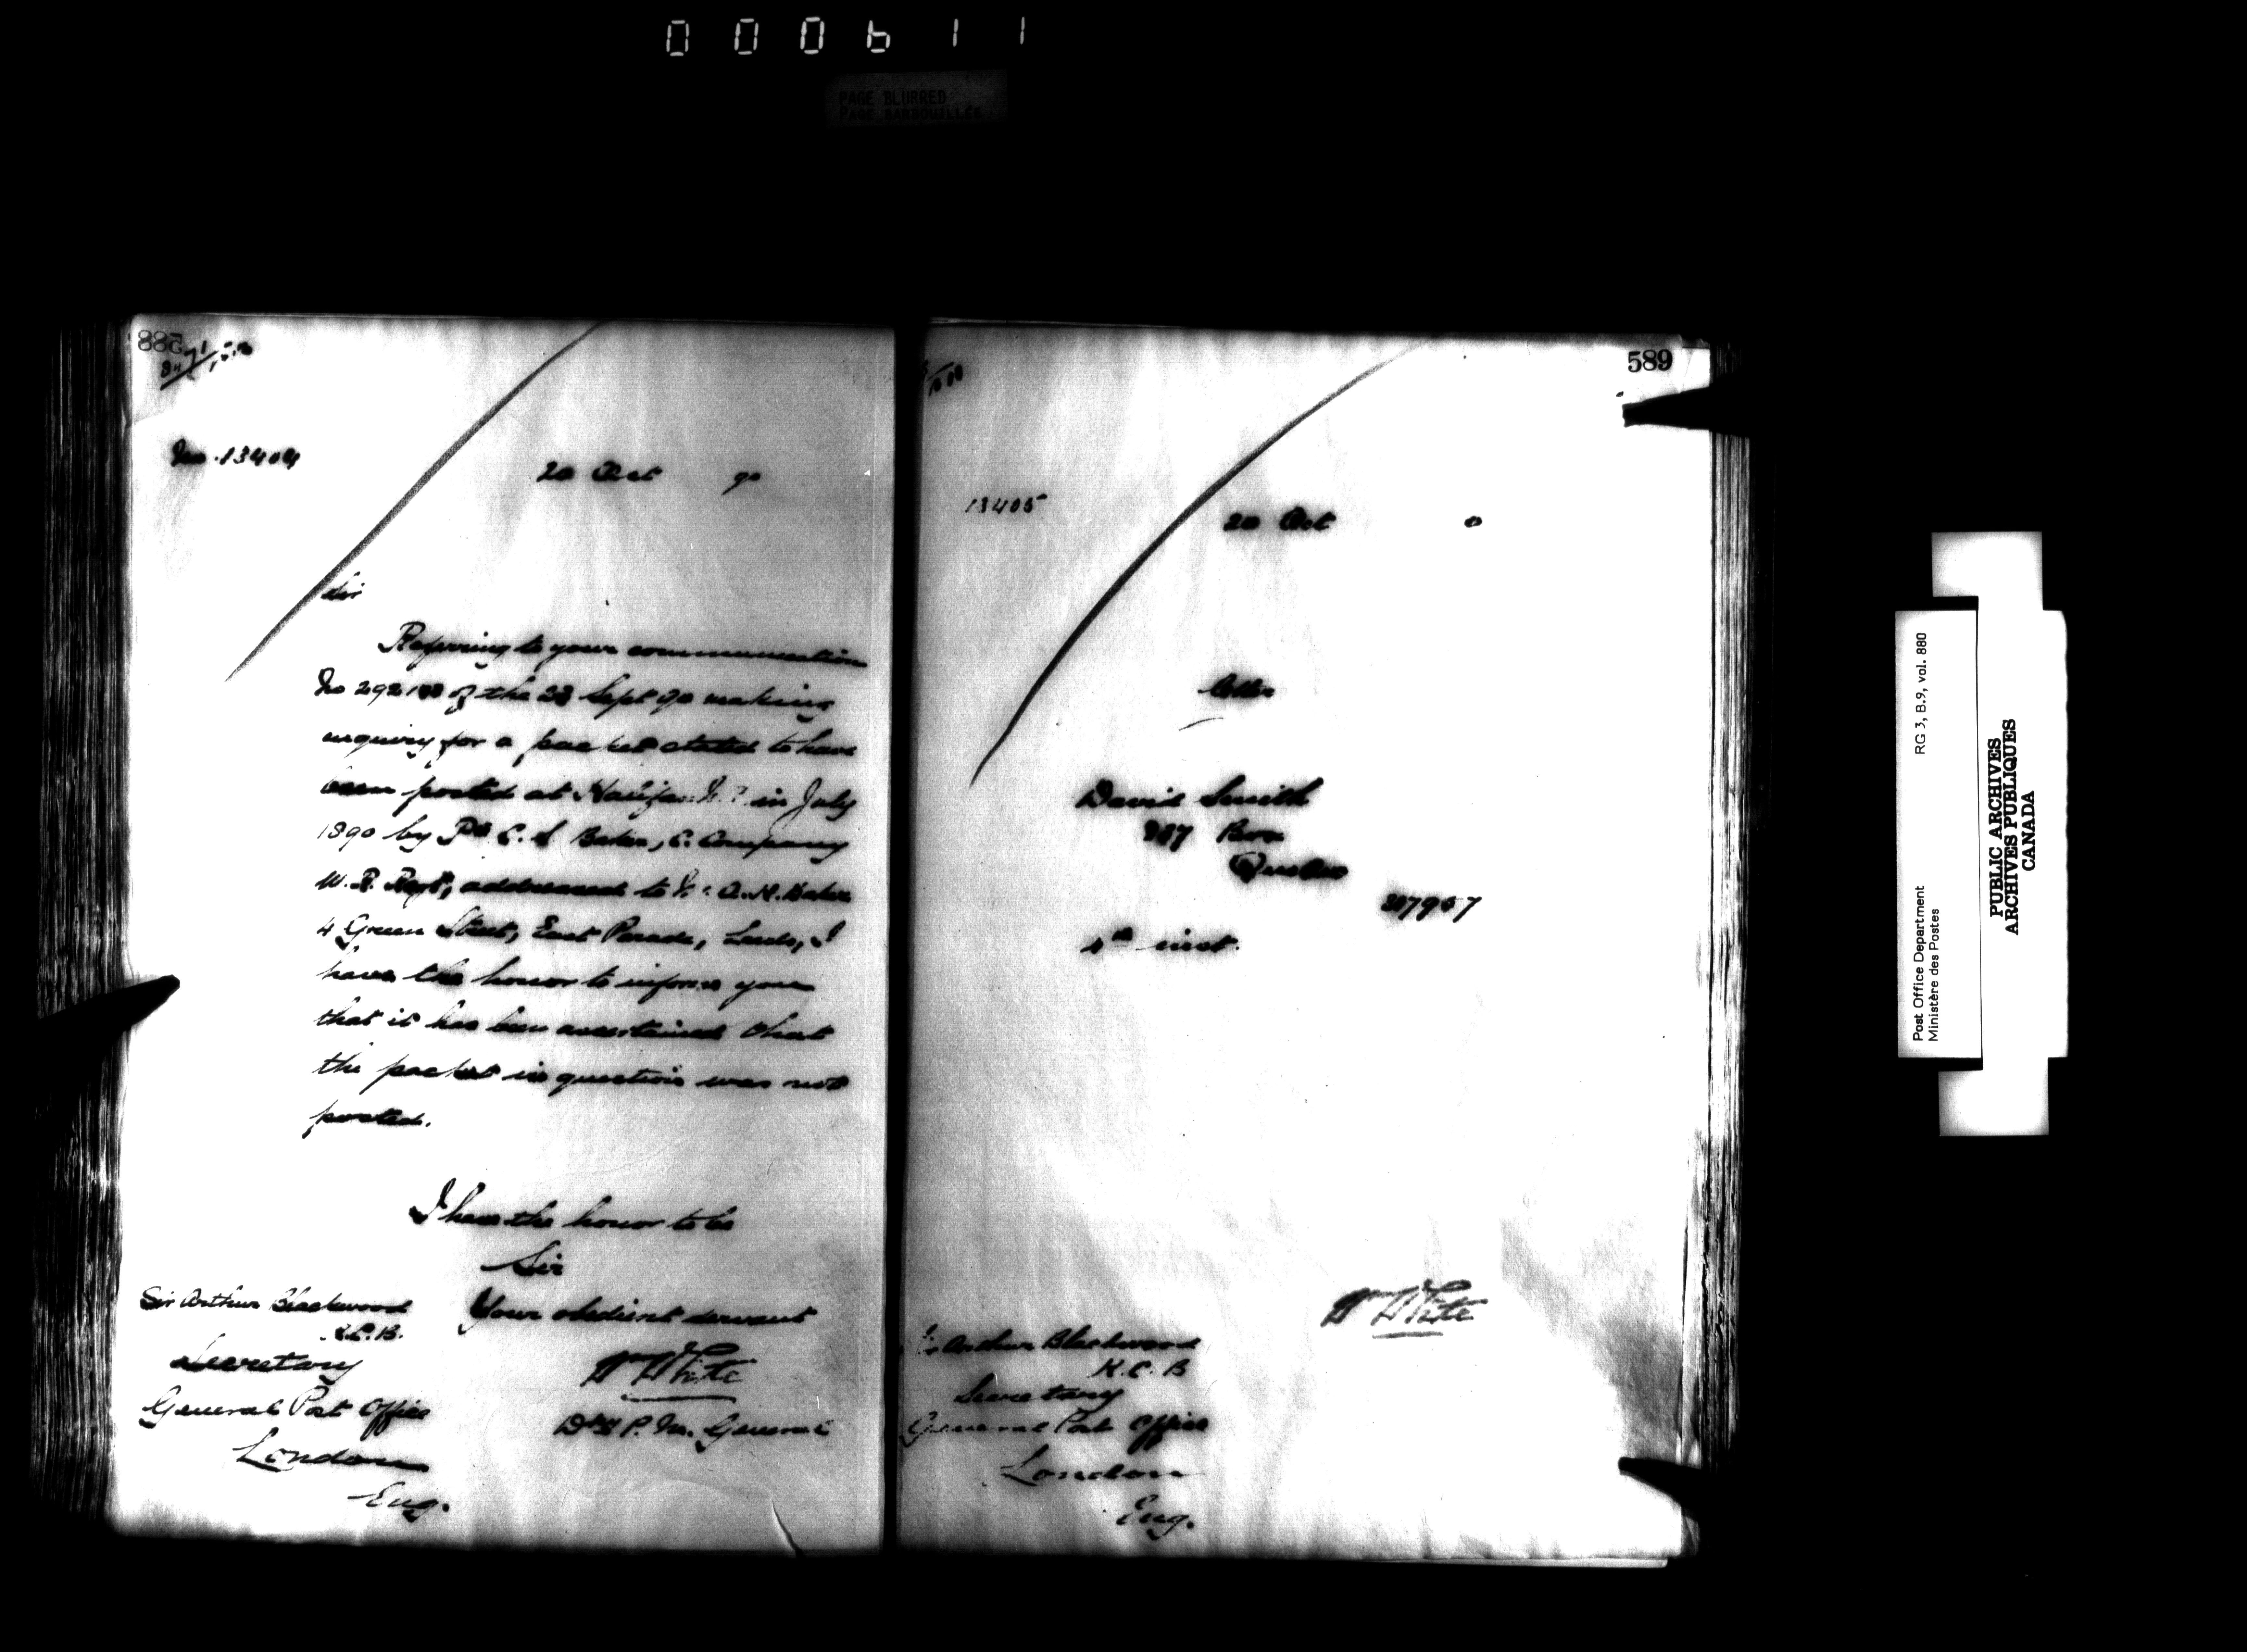 000611
PAGE BLURRED
PAGE BARBOUILLÉE
588
No. 13404
20 Oct 90
Sir
Referring to your communication
No of the Sept 90 making
inquiry for a packet stated to have
been posted at Halifax N.S. in July
1890 by Pte C. Baker, C. Company
W. R. Regt, addressed to A. H. Baker
4 Green Street, East Parade, Leeds, I
have the honor to inform you
that it has been ascertained that
the packet in question was not
posted.
I have the honor to be
Sir
Your obedient servant
Wm White
Dy P. M. General
Sir Arthur Blackwood
K.C.B.
Secretary
General Post Office
London
Eng.
589
13405
20 Oct 0
letter
David Smith
Box
Quebec
4th inst.
Sir Arthur Blackwood
K.C.B
Secretary
General Post Office
London
Eng.
Wm White
Post Office Department RG 3, B.9, vol. 880
Ministère des Postes
PUBLIC ARCHIVES
ARCHIVES PUBLIQUES
CANADA